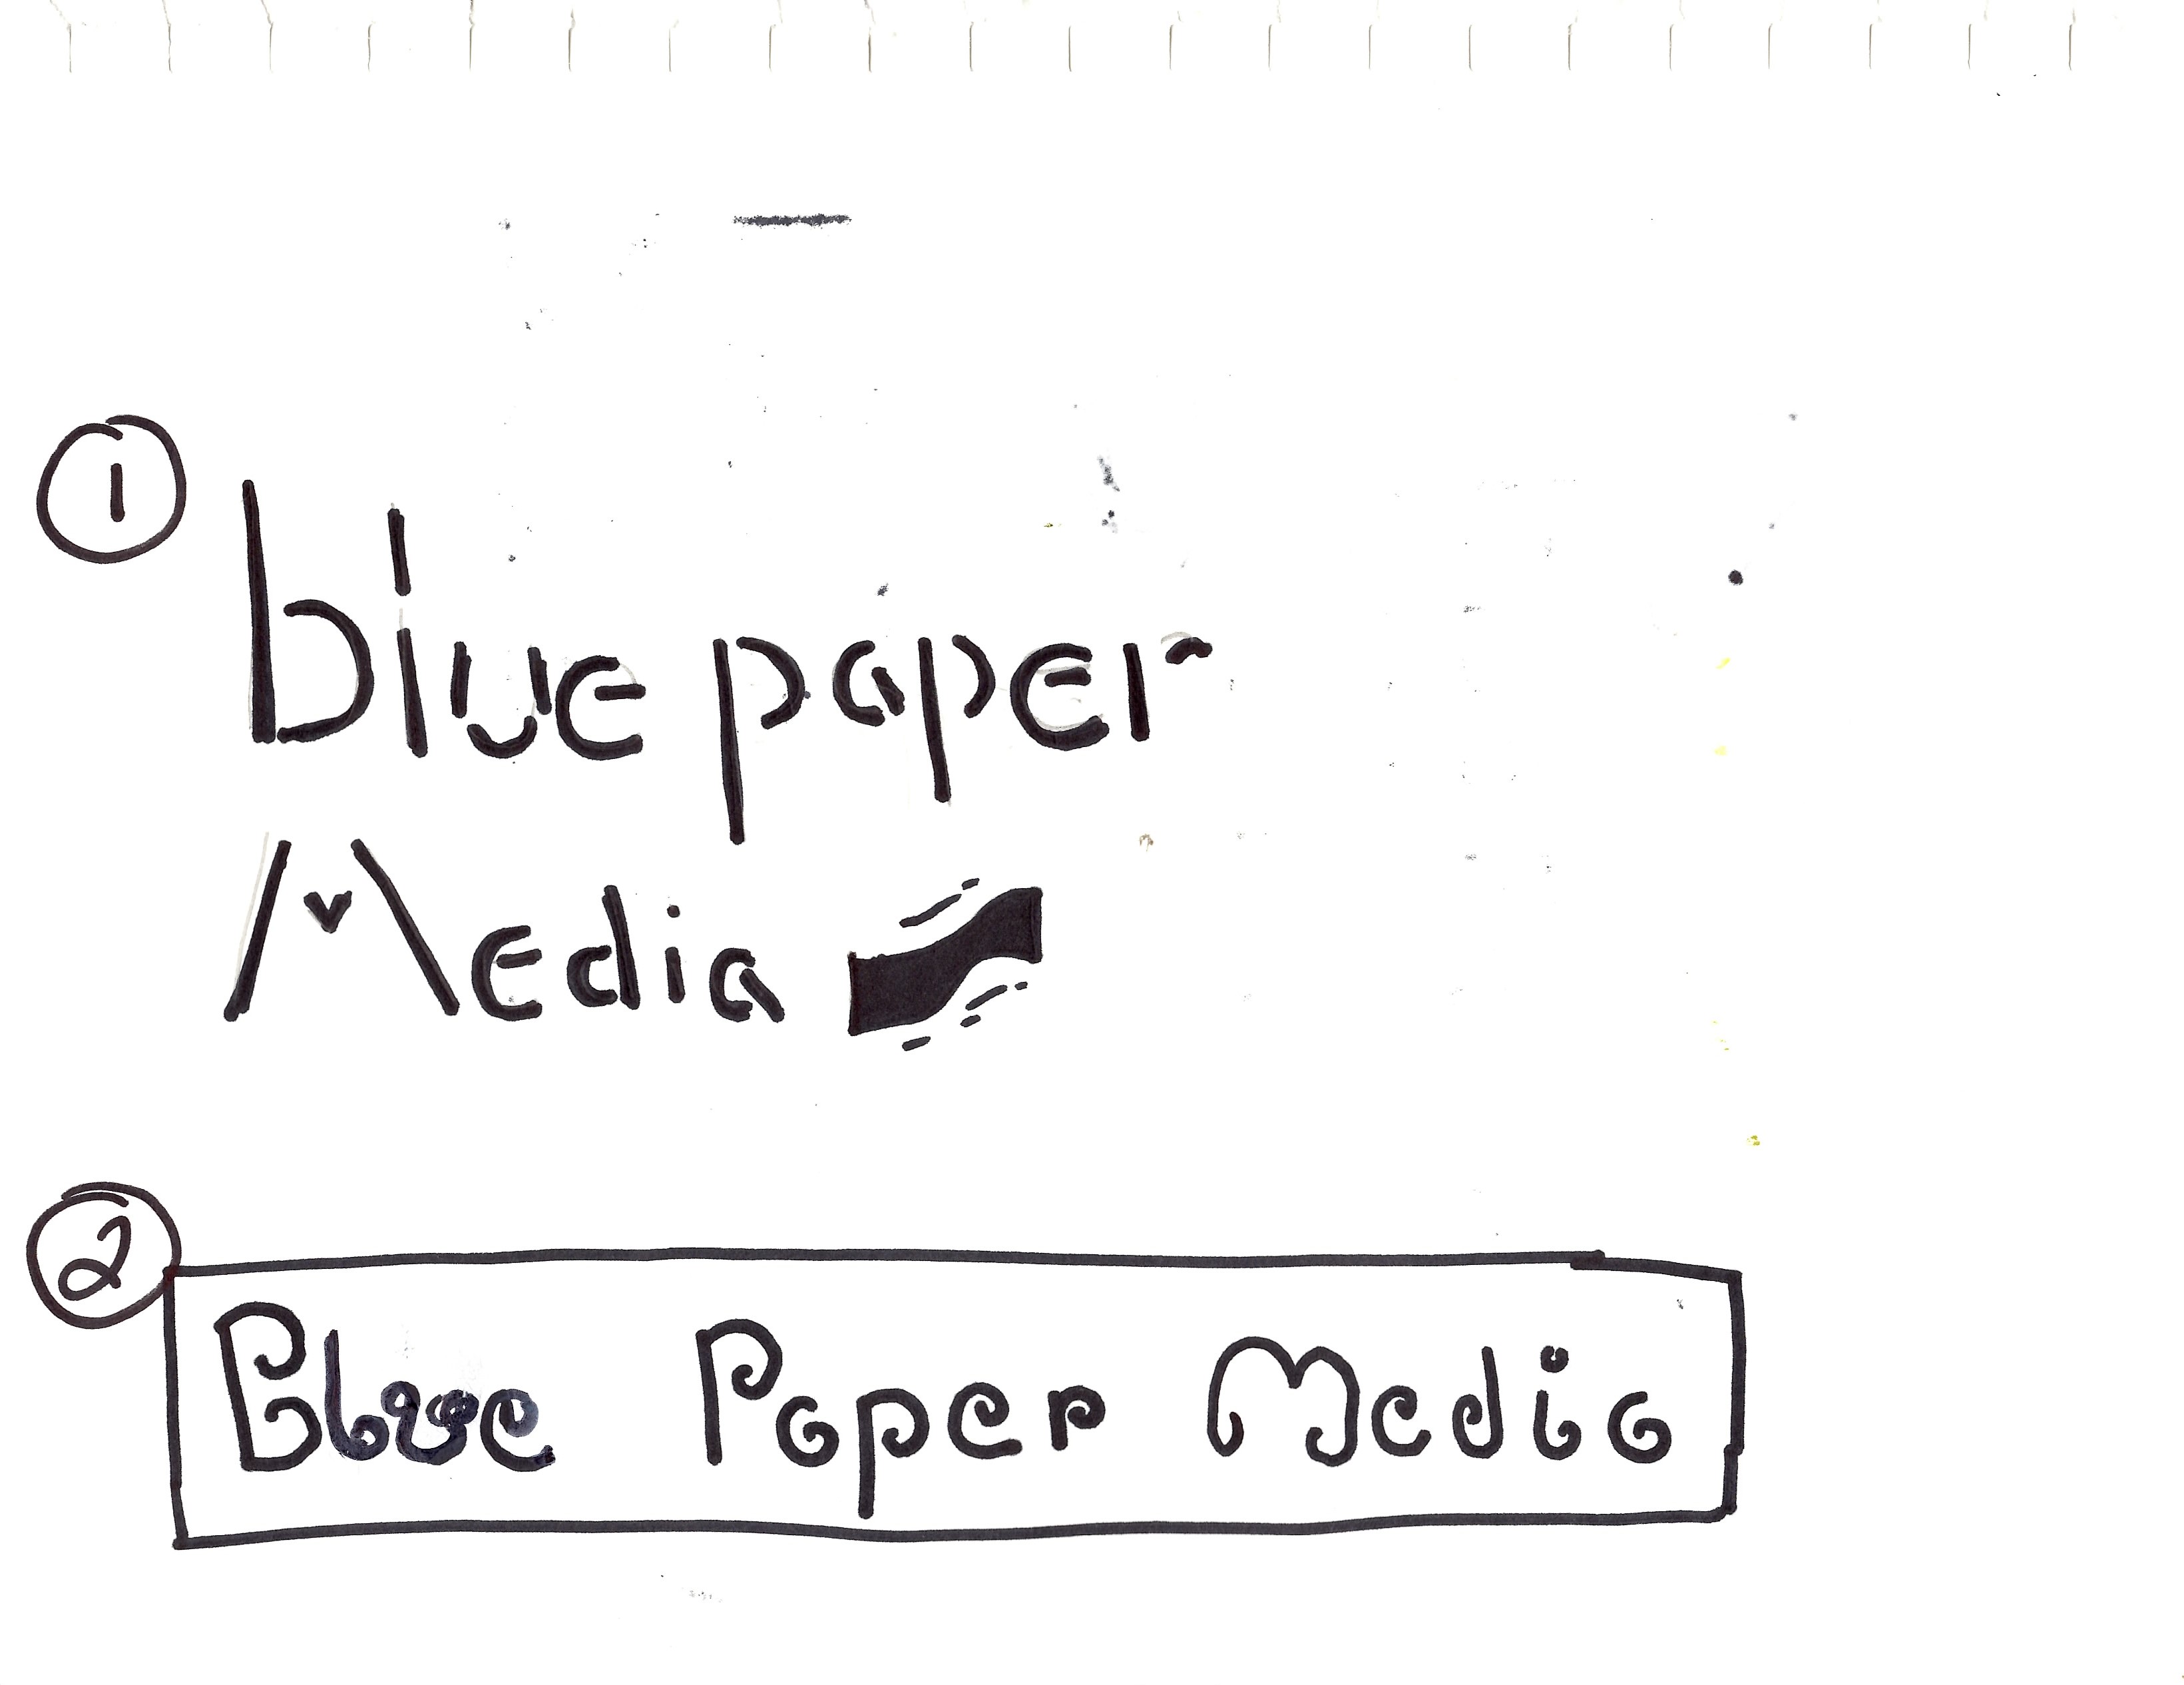 1
blue paper
Media
2
Blue Paper Media